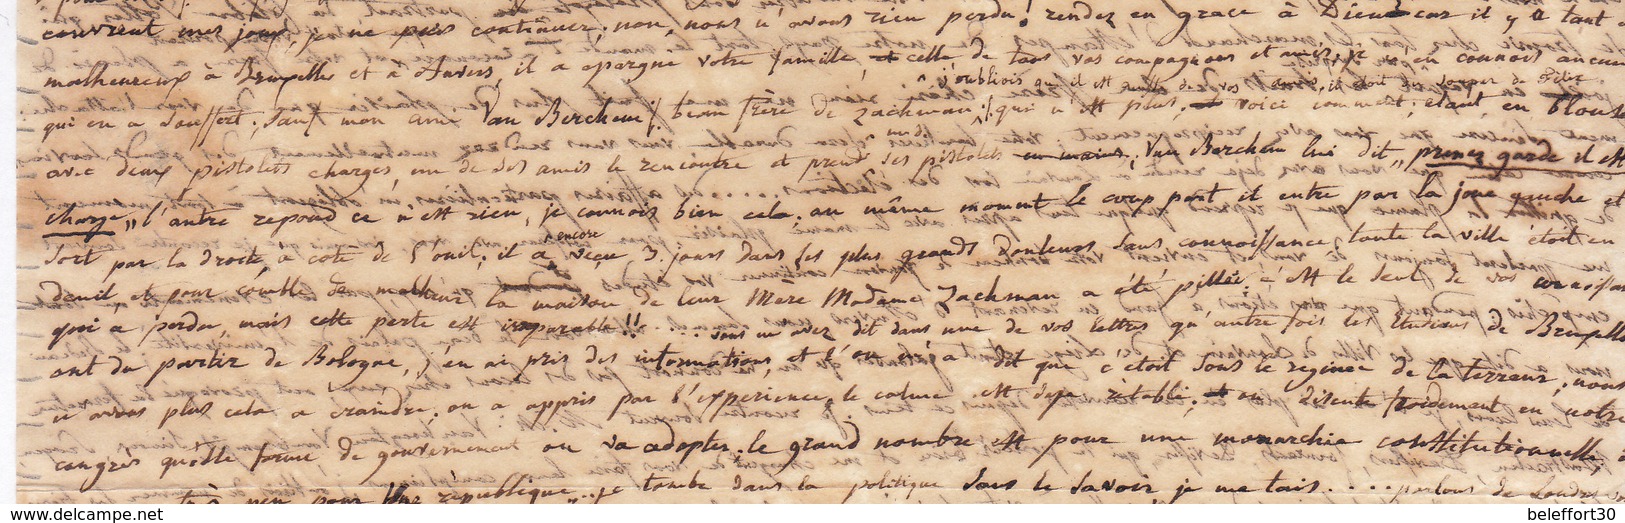 couvrent mes joux, je ne puis continuer, non, nous n'avons rien perdu! rendez en grace à Dieu car il y a tant
malheureux à Bruxelles et à Anvers, il a epargne votre famille, et celle de tous vos compagnons et amis, je n'en connois aucun
j'oubliois qu'il est de vos amis, il etoit de
qui en a souffert, sauf mon ami Van Berchem /: beau frère de Zachman :/ qui n'est plus, voici comment, etant en blouse
avec deux pistolets charges, un de ses amis le rencontre et prend un de ses pistolets en mains, Van Berchem lui dit „prenez garde il est
chargé„ l'autre repond ce n'est rien, je connois bien cela. au même moment le coup part il entre par la joue gauche et
sort par la droite, à coté de l'oeil, il a encore vecu 3. jours dans les plus grands douleurs, sans connoissance, toute la ville étoit en
deuil, et pour comble de malheur la maison de leur Mère Madame Zachman a été pillée; c'est le seul de vos connoissan
qui a perdu, mais cette perte est irreparable!! .... vous m'avez dit dans une de vos lettres qu'autre fois les Etudians de Bruxelles
ont du partir de Bologne, j'en ai pris des informations, et l'on m'a dit que c'étoit sous le regime de la terreur, nous
n'avons plus cela a craindre. on a appris par l'experience. le calme est deja retabli, et on discute froidement en notre
congrès qu'elle forme de gouvernement on va adopter. le grand nombre est pour une monarchie constitutionnelle
à peu pour une république... je tombe dans la politique sans le savoir, je me tais .... parlons de Londres
www.delcampe.net
beleffort30